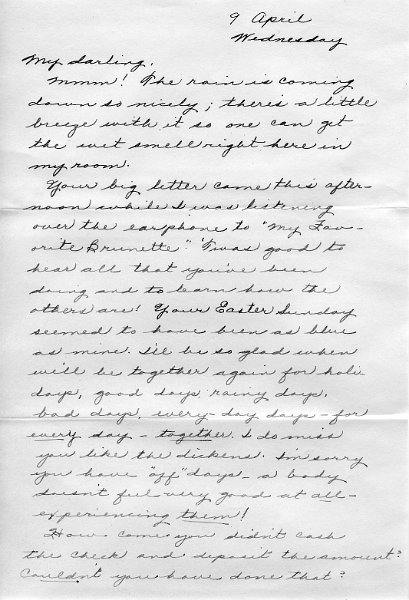 9 April
Wednesday
My darling,
Mmm! The rain is coming
down so nicely; there's a little
breeze with it so one can get
the wet smell right here in
my room.
Your big letter came this after-
noon while I was listening
over the earphone to "My Fav-
orite Brunette." 'Twas good to
hear all that you've been
doing and to learn how the
others are! Your Easter Sunday
seemed to have been as blue
as mine. I'll be so glad when
we'll be together again for holi
days, good days, rainy days,
bad days, every-day days - for
every day - together. I do miss
you like the dickens. I'm sorry
you have "off" days - a body
doesn't feel very good at all -
experiencing them!
How come you didn't cash
the check and deposit the amount?
Couldn't you have done that?